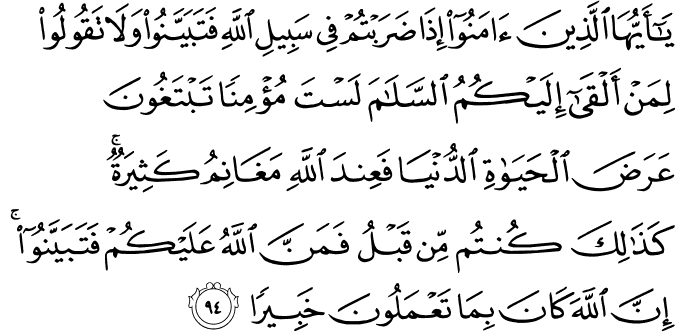 يَـٰٓأَيُّهَا ٱلَّذِينَ ءَامَنُوٓا۟ إِذَا ضَرَبْتُمْ فِى سَبِيلِ ٱللَّهِ فَتَبَيَّنُوا۟ وَلَا تَقُولُوا۟
لِمَنْ أَلْقَىٰٓ إِلَيْكُمُ ٱلسَّلَـٰمَ لَسْتَ مُؤْمِنًا تَبْتَغُونَ
عَرَضَ ٱلْحَيَوٰةِ ٱلدُّنْيَا فَعِندَ ٱللَّهِ مَغَانِمُ كَثِيرَةٌ ۚ
كَذَٰلِكَ كُنتُم مِّن قَبْلُ فَمَنَّ ٱللَّهُ عَلَيْكُمْ فَتَبَيَّنُوٓا۟ ۚ
إِنَّ ٱللَّهَ كَانَ بِمَا تَعْمَلُونَ خَبِيرًا ٩٤